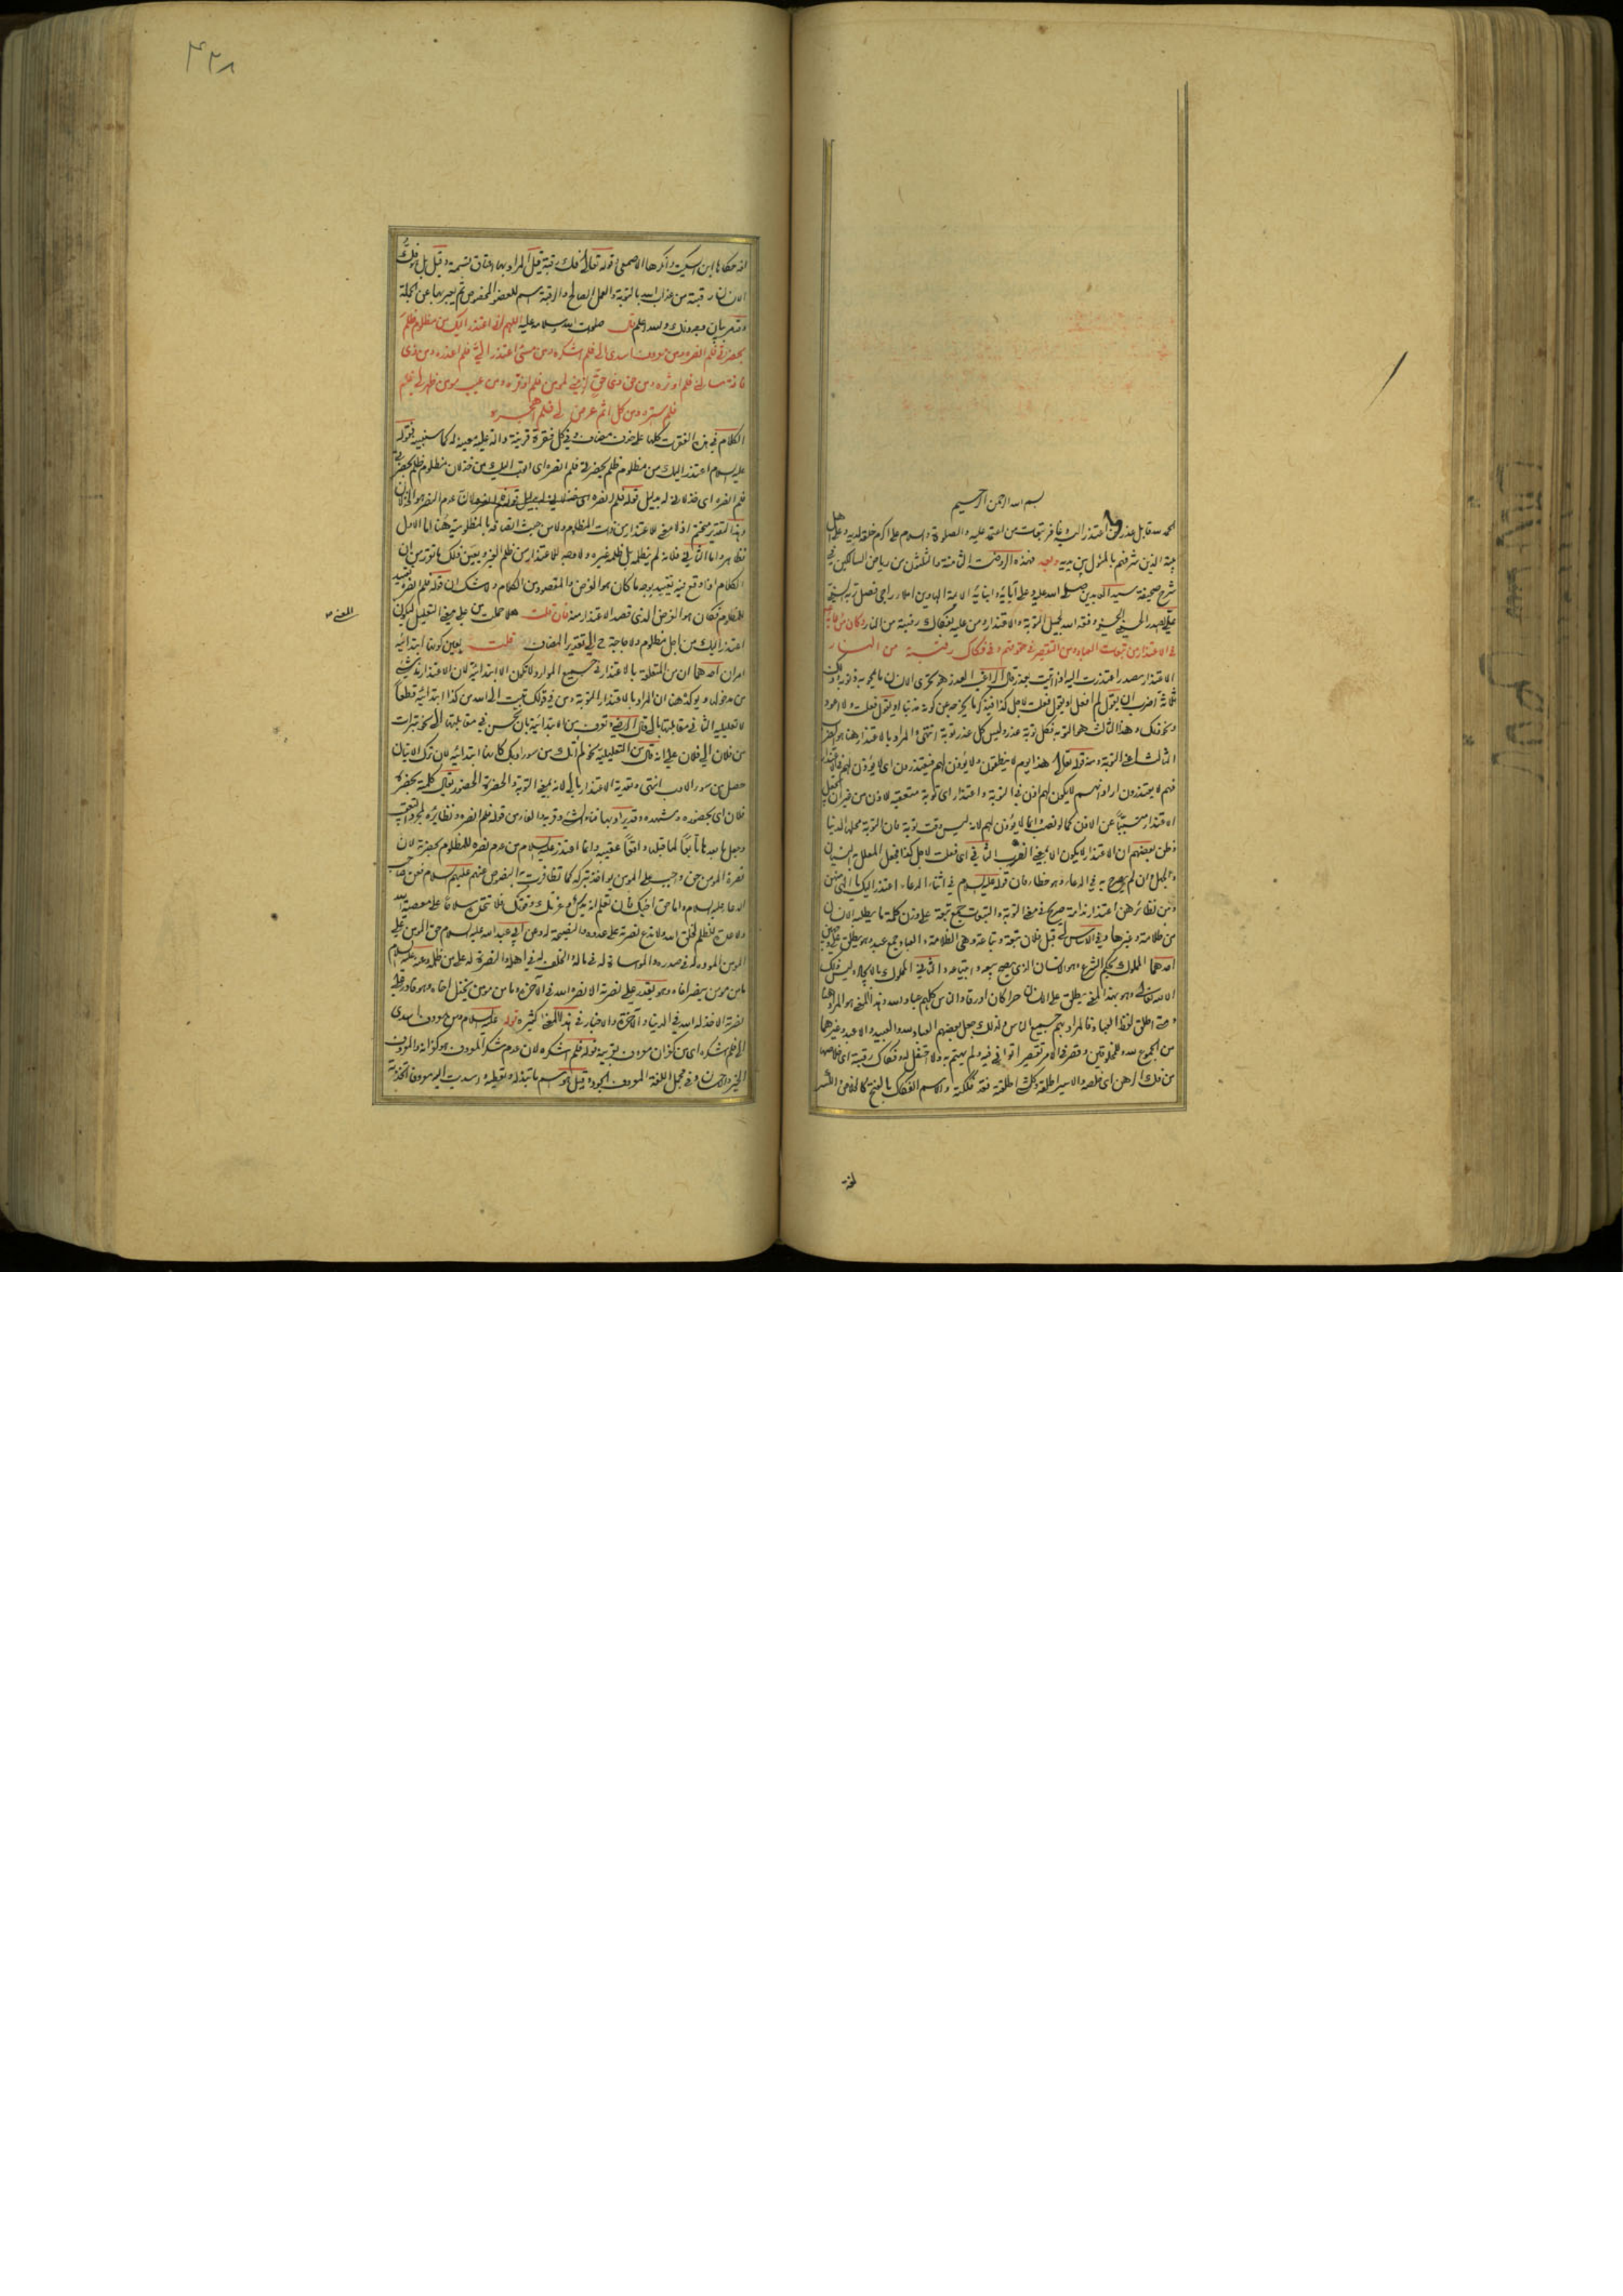 بسم الله الرحمن الرحيم
الحمد لله قابل عذر من اعتذر اليه وغافر تبعات من اعتمد عليه والصلوة والسلام على اكرم خلقه لديه وعلى اهل
بيته الذين شرفهم بالمثول بين يديه وبعد فهذه الروضة الثامنة والثلثون من رياض السالكين في
شرح صحيفة سيد العابدين صلى الله عليه وعلى آبائه وابنائه الائمة الهادين املاء راجي فضل ربه السني
علي صدر الدين الحسيني الحسني وفقه الله لجميل التوبة والاعتذار ومن عليه بفكاك رقبته من النار وكان من دعائه
في الاعتذار من تبعات العباد ومن التقصير في حقوقهم وفي فكاك رقبته من النار
الاعتذار مصدر اعتذرت اليه اذا اتيت بعذر قال الراغب العذر هو تحري الانسان ما يمحو به ذنوبه وذلك
ثلاثة اضرب ان يقول لم افعل او يقول فعلت لاجل كذا فيذكر ما يخرجه عن كونه مذنبا او يقول فعلت ولا اعود
ونحو ذلك وهذا الثالث هو التوبة فكل توبة عذر وليس كل عذر توبة انتهى والمراد بالاعتذار هنا هو الضرب
الثالث اعني التوبة ومنه قوله تعالى هذا يوم لا ينطقون ولا يؤذن لهم فيعتذرون اى لا يؤذن لهم في الاعتذار
فهم لا يعتذرون او لا يكون لهم اذن في التوبة واعتذار اى توبة متعقبة للاذن من غير ان يجعل
الاعتذار مسببا عن الاذن كما لو نصب وانما لا يؤذن لهم لانه ليس وقت توبة فان التوبة محلها الدنيا
وظن بعضهم ان الاعتذار لا يكون الا بمعنى الضرب الثاني اى فعلت لاجل كذا فجعل المعلل به النسيان
والجهل وان لم يصرح به في الدعاء وهو خطاء فان قوله عليه السلام في اثناء الدعاء اعتذر اليك يا الهى منهن
ومن نظائرهن اعتذار ندامة صريح في معنى التوبة والتبعات جمع تبعة على وزن كلمة ما يطلبه الانسان
من ظلامة وغيرها وفي الاساس لى قبل فلان تبعة وتباعة وهى الظلامة والعباد جمع عبد وهو يطلق على معنيين
احدهما المملوك بحكم الشرع وهو الانسان الذي يصح بيعه وابتياعه والثاني المملوك بالايجاد وليس ذلك
الا لله تعالى وهو بهذا المعنى يطلق على الانسان حرا كان او رقا والناس كلهم عباد الله وهذا المعنى هو المراد هنا
ومتى اطلق لفظ العباد فالمراد بهم جميع الناس ولذلك جعل بعضهم العباد لله والعبيد والاعبد وغيرهما
من الجموع لله وللمخلوقين وقصر في الامر تقصيرا توانى فيه ولم يهتم به ولا احتفل له وفكاك رقبته اى خلاصها
من فك الرهن اى خلصه والاسير اطلقه وكل شئ اطلقته فقد فككته والاسم الفكاك بالفتح كالخلاص والكسر
لغة
٤٢٨
لغة حكاها ابن السكيت وانكرها الاصمعي وقوله تعالى فك رقبة قيل المراد بها اعتاق نسمة وقيل بل هو فك
الانسان رقبته من عذاب الله بالتوبة والعمل الصالح والرقبة اسم للعضو المخصوص ثم يعبر بها عن الجملة
وقد مر بيان وجه ذلك والله اعلم قال صلوات الله وسلامه عليه اللهم اني اعتذر اليك من مظلوم ظلم
بحضرتي فلم انصره ومن معروف اسدى الي فلم اشكره ومن مسئ اعتذر الي فلم اعذره ومن ذي
فاقة سالني فلم اوثره ومن حق ذي حق لزمني لمؤمن فلم اوفره ومن عيب مؤمن ظهر لي فلم
فلم استره ومن كل اثم عرض لي فلم اهجره
الكلام في هذه الفقرات كلها على حذف مضاف وفي كل فقرة قرينة دالة عليه معينة له كما سنبينه فقوله
عليه السلام اعتذر اليك من مظلوم ظلم بحضرتي فلم انصره اى اتوب اليك من خذلان مظلوم ظلم بحضرتي
فلم انصره اى خذلاني له بدليل قوله فلم انصره لان عدم النصر هو الخذلان
وهذا التقدير متحتم اذ لا معنى للاعتذار من ذات المظلوم ولا من حيث اتصافه بالمظلومية هنا اما الاول
فظاهر واما الثاني فلانه لم يظلمه بل ظلمه غيره ولا وجه للاعتذار من ظلم الغير ويعين ذلك ما تقرر من ان
الكلام اذا وقع فيه تقييد بوجه ما كان هو الغرض والمقصود من الكلام ولا شك ان قوله فلم انصره تقييد
للكلام فكان هو الغرض الذي قصد الاعتذار منه فان قلت هلا حملت من على معنى التعليل ليكون
المعنى
اعتذر اليك من اجل مظلوم ولا حاجة ح الى تقدير المضاف قلت يعين كونها ابتدائية
امران احدهما ان من المتعلقة بالاعتذار في جميع الموارد لا تكون الا ابتدائية لان الاعتذار ناشئ
من مدخولها ويؤكده هنا ان المراد بالاعتذار التوبة ومن في قولك تبت الى الله من كذا ابتدائية قطعا
لا تعليلية الثاني مقابلتها بالى قال الرضي وتعرف من الابتدائية بان يحسن في مقابلتها الى نحو تبرات
من فلان الى فلان
حصل من سوء الادب انتهى وتعدية الاعتذار بالى لانه بمعنى التوبة والحضرة الحضور يقال كلمته بحضرة
فلان اى بحضوره ومشهده
نصرة المؤمن حق واجب على المؤمن يواخذ بتركه كما تظافرت به النصوص عنهم عليهم السلام فعن صاحب
الدعاء عليه السلام واما حق اخيك فان تعلم انه يدك وعزك وقوتك فلا تتخذه سلاحا على معصية الله
ولا عدة للظلم لخلق الله ولا تدع نصرته على عدوه والنصيحة له وعن ابي عبد الله عليه السلام حق المؤمن على
المؤمن المودة له في صدره والمواساة له في ماله والخلف له في اهله والنصرة له على من ظلمه وعنه عليه السلام
ما من مؤمن ينصر اخاه وهو يقدر على نصرته الا نصره الله في الدنيا والآخرة وما من مؤمن يخذل اخاه وهو قادر على
نصرته الا خذله الله في الدنيا والآخرة والاخبار في هذا المعنى كثيرة قوله عليه السلام ومن معروف اسدى
الي فلم اشكره اى من كفران معروف بقرينة قوله فلم اشكره لان عدم شكر المعروف هو كفرانه والمعروف
الخير والاحسان وفي مجمل اللغة المعروف الجود وقيل هو اسم ما تبذله وتعطيه واسديت اليه معروفا اتخذته